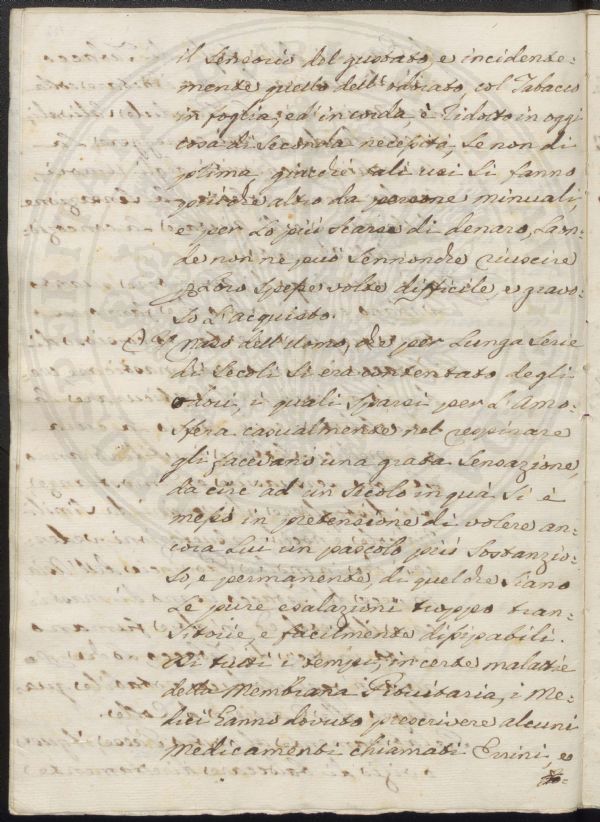 il senso del gustato, e incidente-
mente quello dell'odorato, col Tabacco
in foglia, ed in corda, è ridotto in oggi
cosa di seconda necessità, se non di
prima, giacchè tali usi si fanno
per altro da persone minuali,
e per lo più scarse di denaro, laon-
de non ne può sennonche riuscire
loro spesse volte difficile, e gravo-
so l'acquisto.
naso dell'uomo, che per lunga serie
di secoli si era contentato degli
odori, i quali sparsi per l'Amo-
sfera casualmente nel respirare
gli facevano una grata sensazione,
da circ ad un secolo in quà si è
messo in pretensione di volere an-
cora lui un pascolo più sostanzio-
so, e permanente, di quelche siano
le pure esalazioni troppo tran-
sitorie, e facilmente dissipabili.
In tutti i tempi, in certe malatie
della Membrana Pituitaria, i Me-
dici hanno dovuto prescrivere alcuni
medicamenti chiamati Errini, e